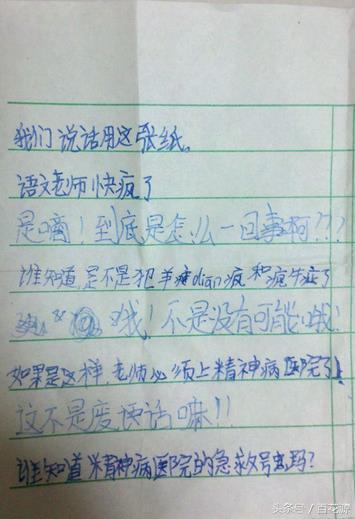 我们说话用这张纸。
语文老师快疯了
是嘀！到底是怎么一回事啊？？？
谁知道,是不是犯羊癫dian疯和疯牛症了
哦！不是没有可能哦！
如果是这样,老师必须上精神病医院了！
这不是废话嘛！！
谁知道精神病医院的急救号码？
头条号 / 百花源